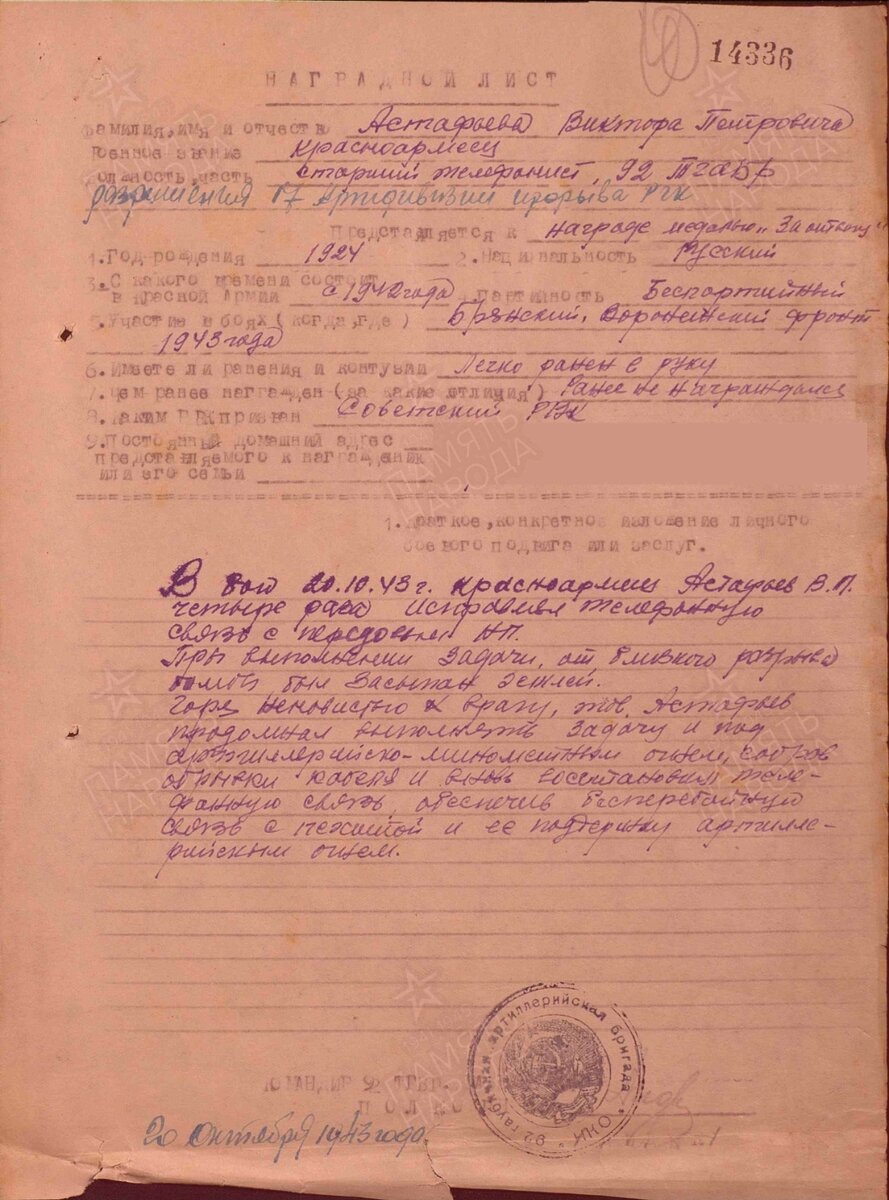 14336
НАГРАДНОЙ ЛИСТ
Фамилия, имя и отчество Астафьева Виктора Петровича
Военное звание красноармеец
Должность, часть старший телефонист, 92 ТГАБР
17 Артдивизии прорыва РГК
Представляется к награде медалью "За отвагу"
1. Год рождения 1924 2. Национальность Русский
3. С какого времени состоит
в Красной Армии с 1942 года Партийность Беспартийный
5. Участие в боях (когда, где) Брянский, Воронежский фронт
1943 года
6. Имеете ли ранения и контузии Легко ранен в руку
7. Чем ранее награжден (за какие отличия) Ранее не награждался
8. Каким РВК призван Советский РВК
9. Постоянный домашний адрес
представляемого к награждению
или его семьи
1. Краткое, конкретное изложение личного
боевого подвига или заслуг.
В бою 20.10.43 г. красноармеец Астафьев В.П.
четыре раза исправлял телефонную
связь с передовым НП.
При выполнении задачи, от близкого разрыва
бомбы был засыпан землей.
Горя ненавистью к врагу, тов. Астафьев
продолжал выполнять задачу и под
артиллерийско-минометным огнем, собрав
обрывки кабеля и вновь восстановил теле-
фонную связь, обеспечив бесперебойную
связь с пехотой и ее поддержку артилле-
рийским огнем.
КОМАНДИР 92 ТГАБР
92 гаубичная артиллерийская бригада * ОНК *
20 октября 1943 года.
ПАМЯТЬ НАРОДА